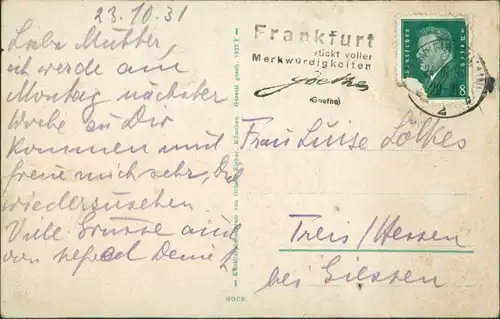 23.10.31
Liebe Mutter,
ich werde am
Montag nächster
Woche zu Dir
kommen und
freue mich sehr, Dich
wiederzusehen
Viele Grüsse auch
von
Frankfurt
steckt voller
Merkwürdigkeiten
Goethe
(Goethe)
Deutsches Reich
8
Frau Luise Lölkes
Treis/Hessen
bei Giessen